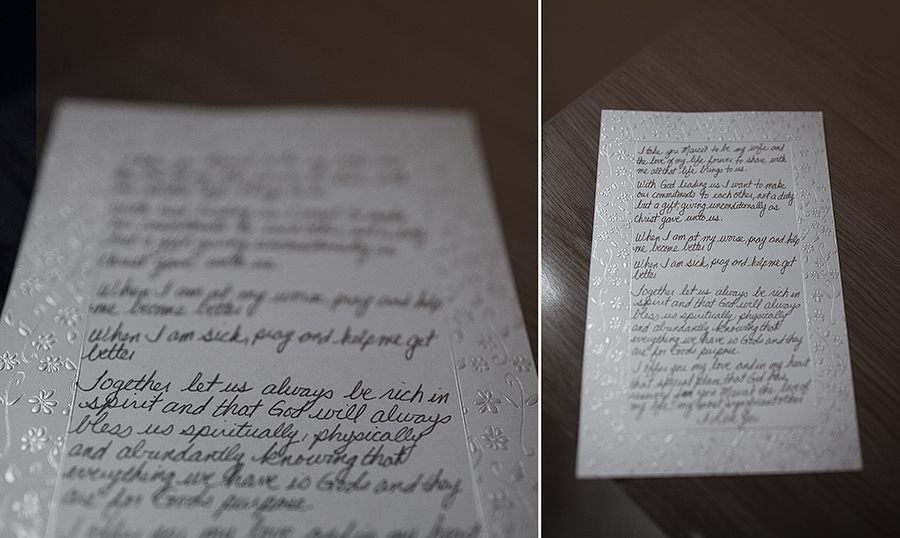 When I am at my worse, pray and help
me become better
When I am sick, pray and help me get
better
Together let us always be rich in
spirit and that God will always
bless us spiritually, physically
and abundantly knowing that
everything we have is Gods and they
are for Gods purpose.
I offer you my love and in my heart
I take you Marcel to be my wife and
the love of my life forever, to share with
me all that life brings to us.
With God leading us I want to make
our commitments to each other, not a duty
but a gift, giving unconditionally as
Christ gave unto us.
When I am at my worse, pray and help
me become better
When I am sick, pray and help me get
better
Together let us always be rich in
spirit and that God will always
bless us spiritually, physically
and abundantly knowing that
everything we have is Gods and they
are for Gods purpose
I offer you my love and in my heart
that special place that God has
you Marcel the love of
my life, my
I love you